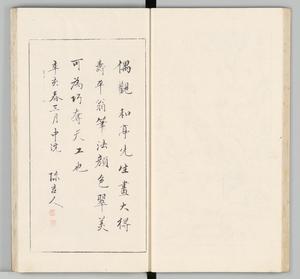 偶觀 和亭先生畫大得
壽平翁筆法顔色翠美
可為巧奪天工也
辛亥春三月中浣
孫吉人